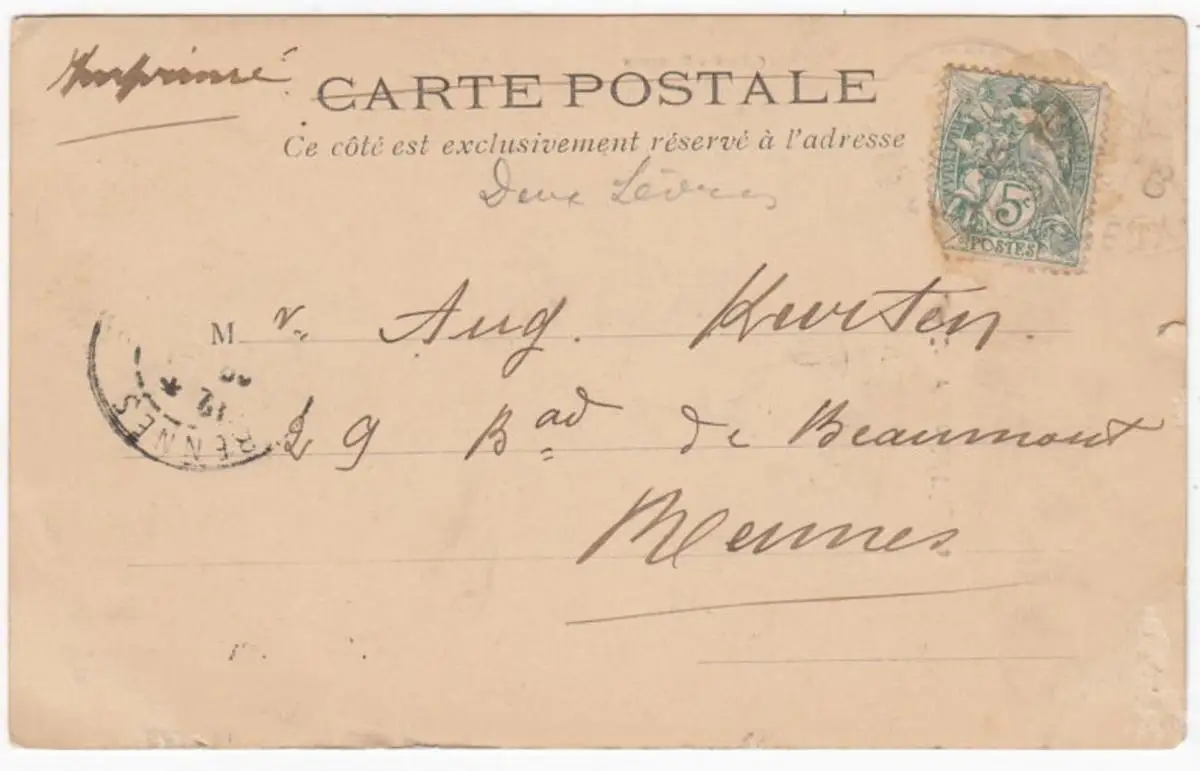 Imprimé
CARTE POSTALE
Ce côté est exclusivement réservé à l'adresse
Deux Sèvres
5c
POSTES
Mr. Aug. Kursten
29 Bad de Beaumont
Rennes
RENNES
12